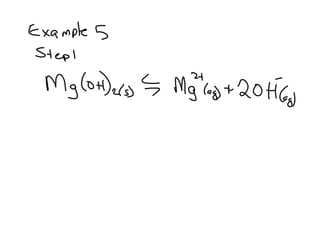 Example 5
Step1
Mg(OH)₂(s) ⇆ Mg²⁺(aq) + 2OH⁻(aq)